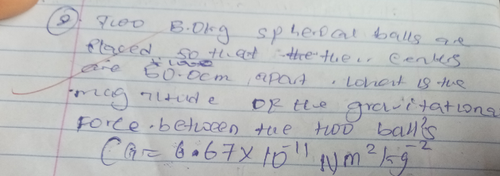 8 Two 5.0kg spherical balls are
placed so that the their centers
are 50.0cm apart. What is the
magnitude of the gravitationa
force between the two balls
(G = 6.67 × 10⁻¹¹ Nm²kg⁻²